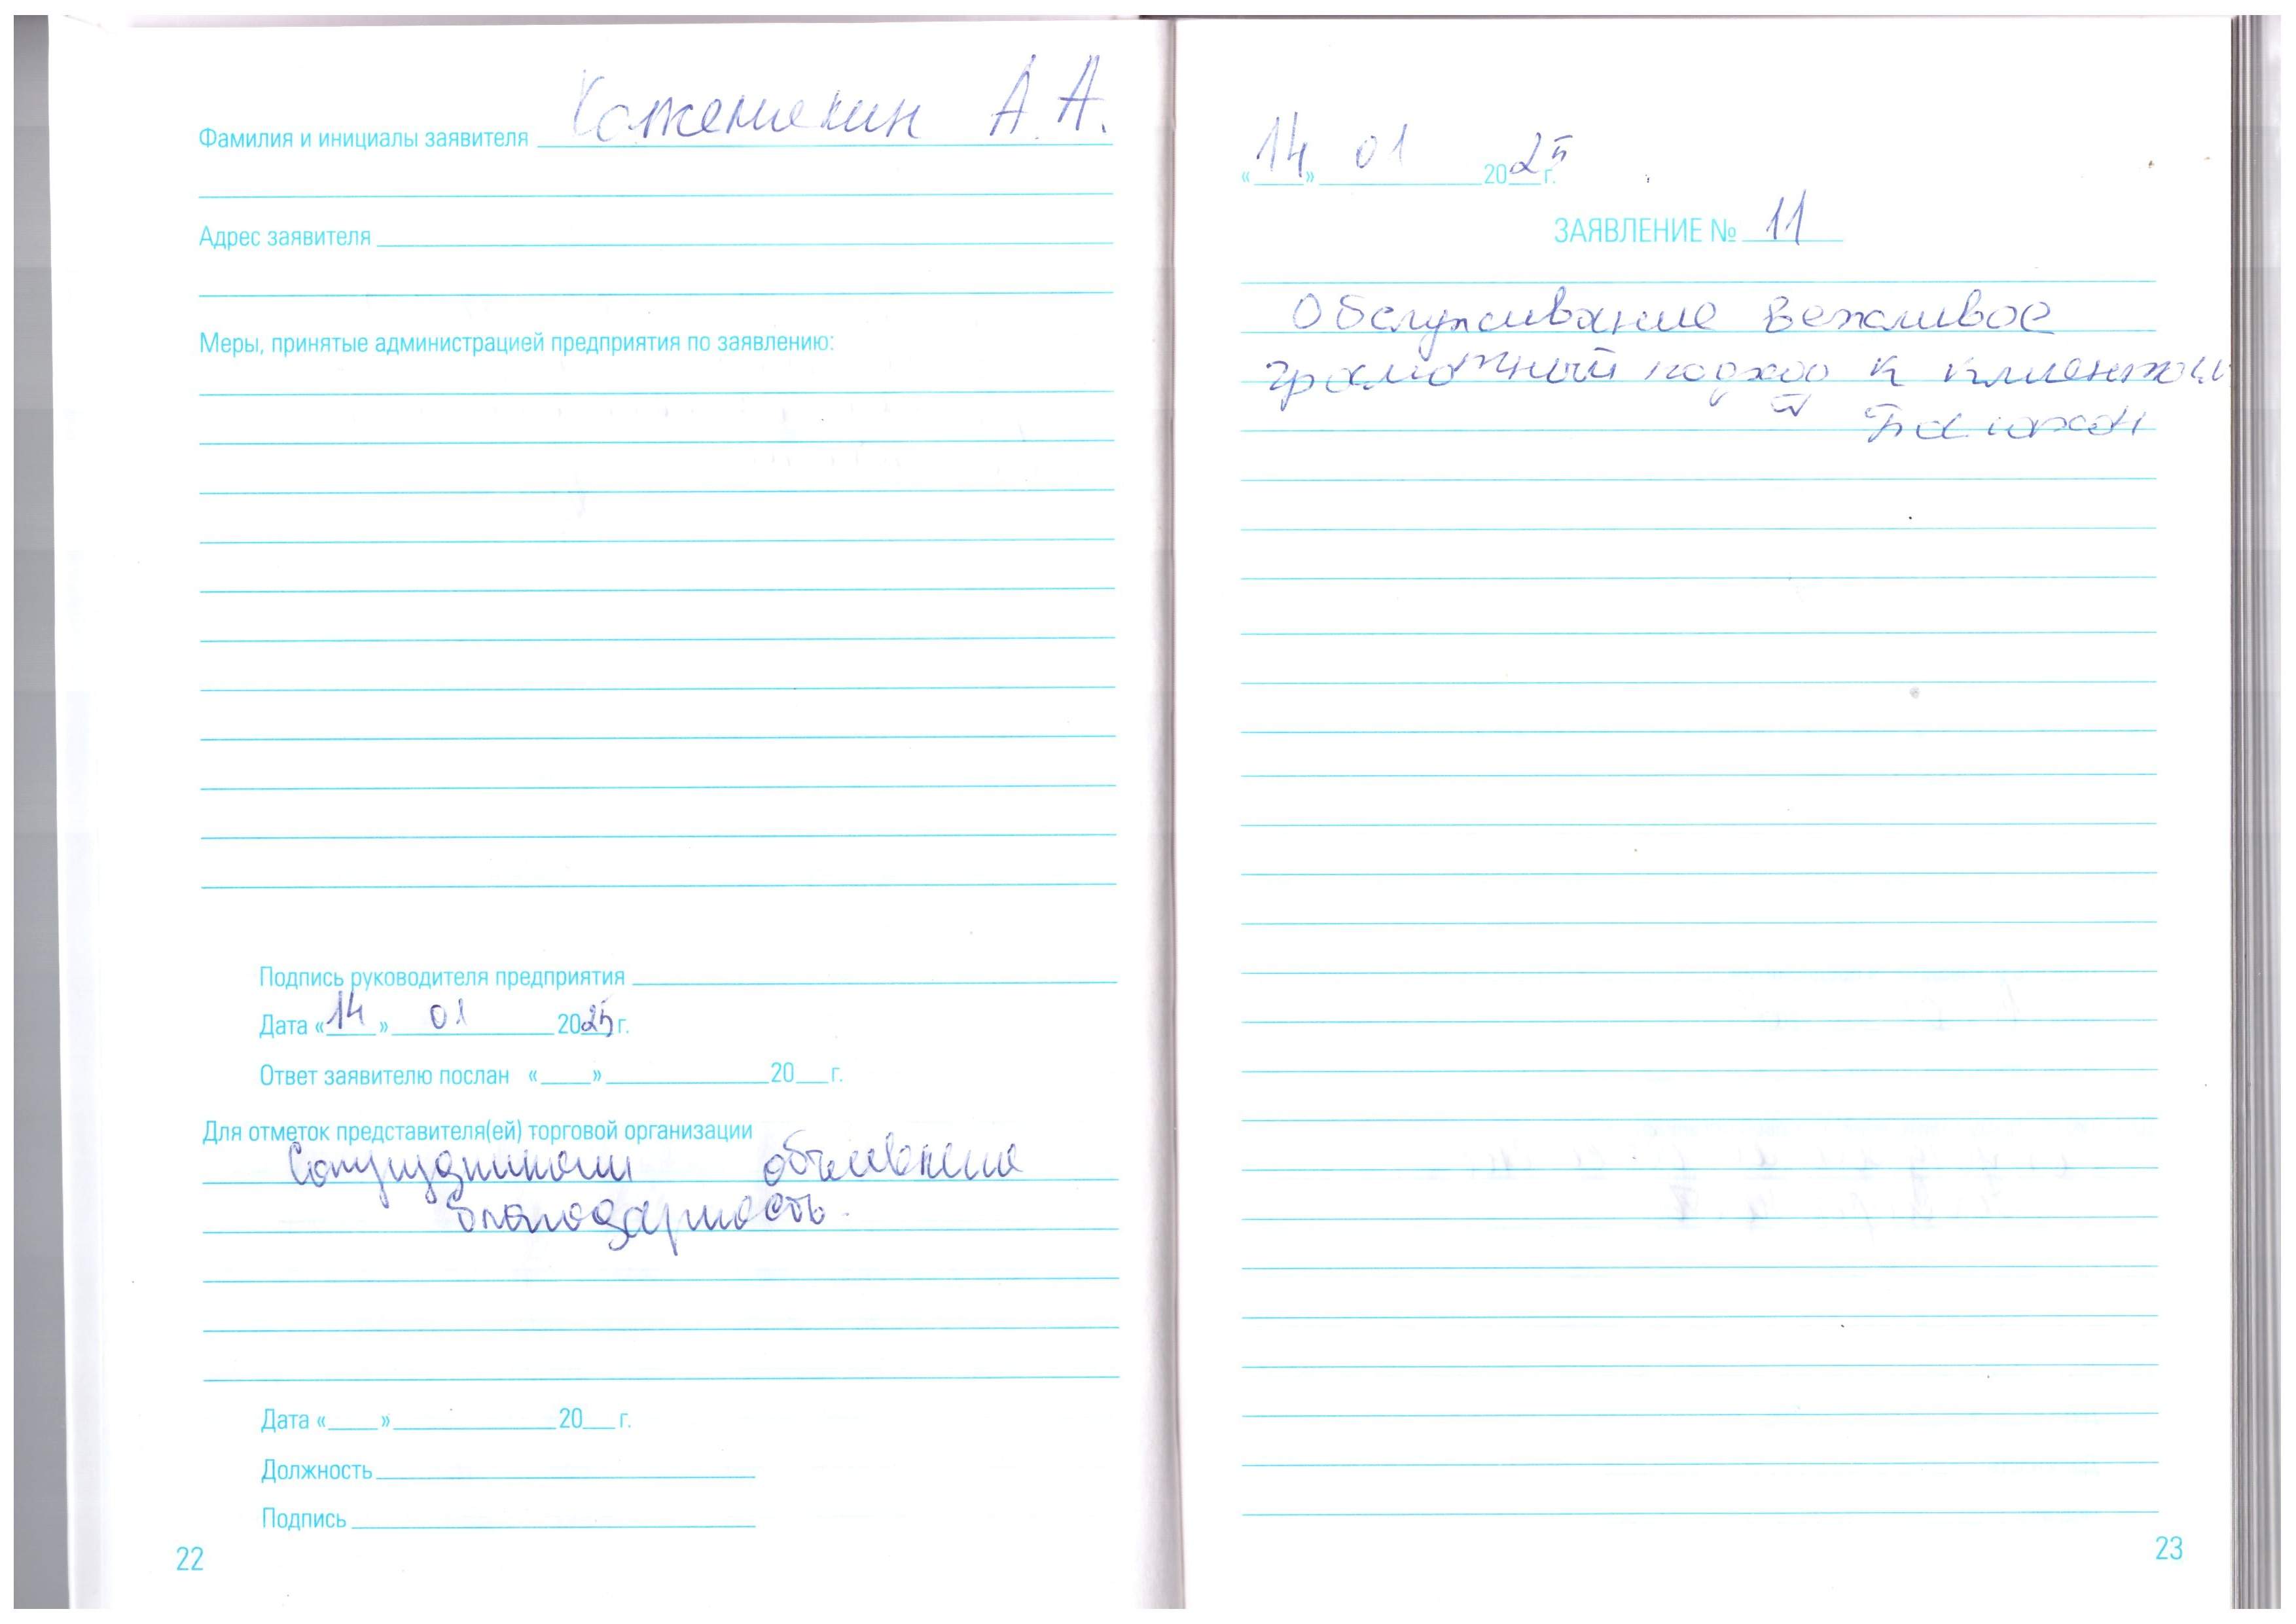 Фамилия и инициалы заявителя А. А.
Адрес заявителя
Меры, принятые администрацией предприятия по заявлению:
Подпись руководителя предприятия
Дата «14» 01 2025 г.
Ответ заявителю послан « » 20 г.
Для отметок представителя(ей) торговой организации
Сотрудникам объявлена
благодарность.
Дата « » 20 г.
Должность
Подпись
22
«14» 01 2025 г.
ЗАЯВЛЕНИЕ № 11
Обслуживание вежливое
грамотный подход к клиентам
23